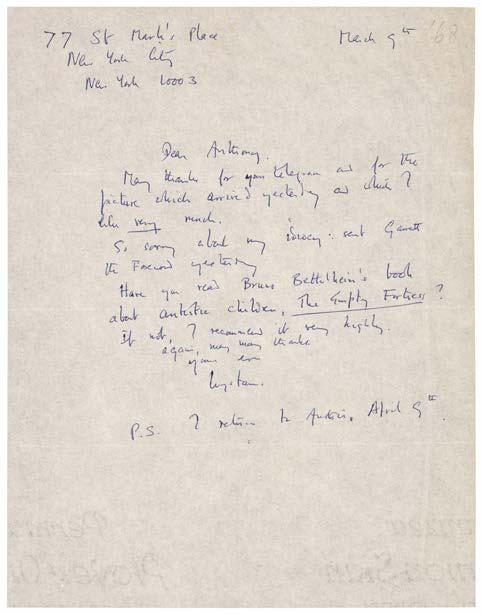 77 St Mark's Place
March 9th '68
New York City
New York 10003
Dear Anthony.
Many thanks for your telegram and for the
picture which arrived yesterday and which I
like very much.
So sorry about my idiocy: sent Garrett
the Foreword yesterday
Have you read Bruno Bettelheim's book
about autistic children, The Empty Fortress?
If not, I recommend it very highly.
again, many many thanks
yours ever
Wystan.
P.S. I return to Austria, April 9th.